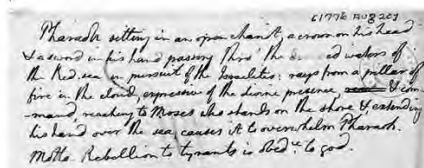 [1776 Aug 20]
Pharaoh sitting in an open chariot, a crown on his head
& a sword in his hand passing thro' the d ed waters of
the Red sea in pursuit of the Israelites: rays from a pillar of
fire in the cloud, expressive of the divine presence, & com-
mand, reaching to Moses who stands on the shore & extending
his hand over the sea causes it to overwhelm Pharaoh.
Motto. Rebellion to tyrants is obed.ce to god.